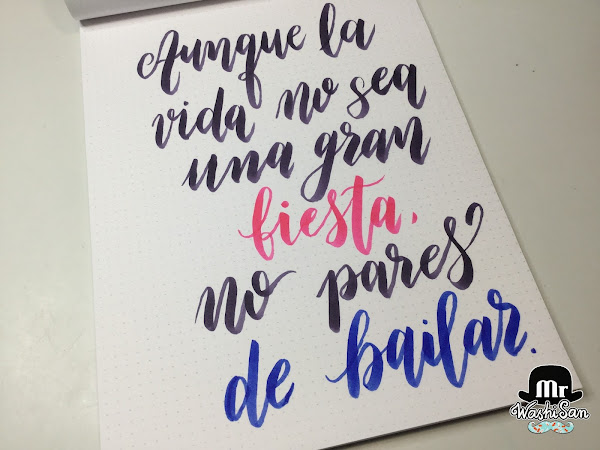 Aunque la
vida no sea
una gran
fiesta,
no pares
de bailar.
Mr
WashiSan